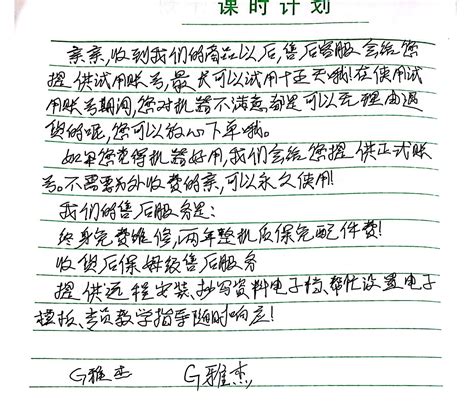 课时计划
亲亲,收到我们的商品以后,售后客服会给您
提供试用账号,最长可以试用十五天哦!在使用试
用账号期间,您对机器不满意都是可以无理由退
货的呢,您可以放心下单哦。
如果您觉得机器好用,我们会给您提供正式账
号。不需要另外收费的亲,可以永久使用!
我们的售后服务是:
终身免费维修,两年整机质保免配件费!
收货后保姆级售后服务
提供远程安装、抄写资料电子档、帮忙设置电子
模板、专员教学指导随时响应!
G雅杰 G雅杰,